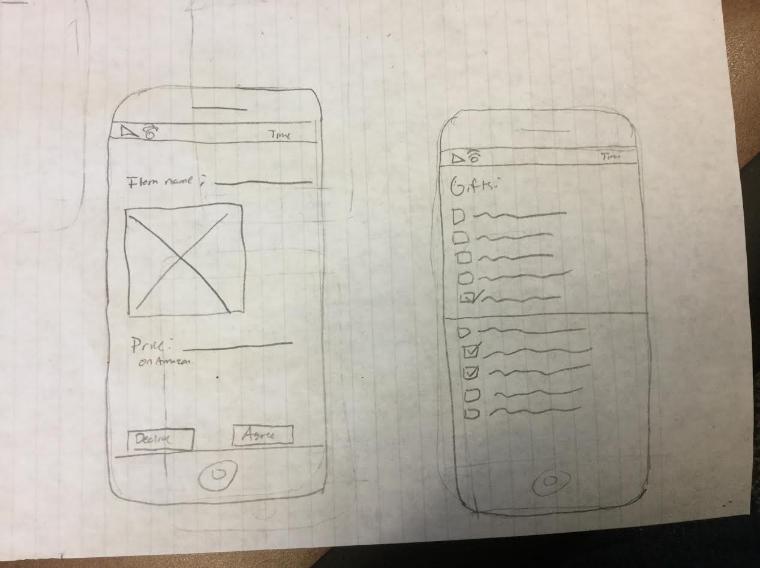 Time
Item name:
Price:
on Amazon
Decline
Agree
Time
Gifts: